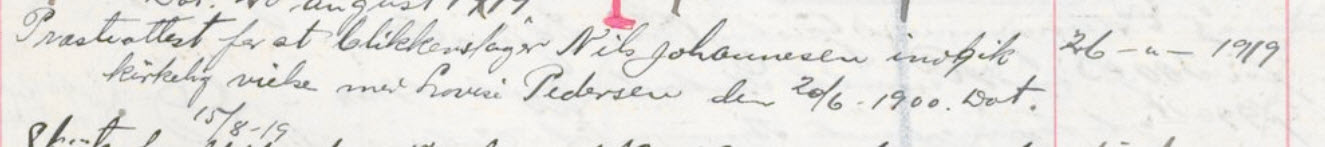 Dat. 20 august 1919
Prasteattest for at blikkenslager Nils Johannesen indgik 26 -"- 1919
kirkelig vielse med Lovise Pedersen den 20/6-1900. Dat.
15/8-19